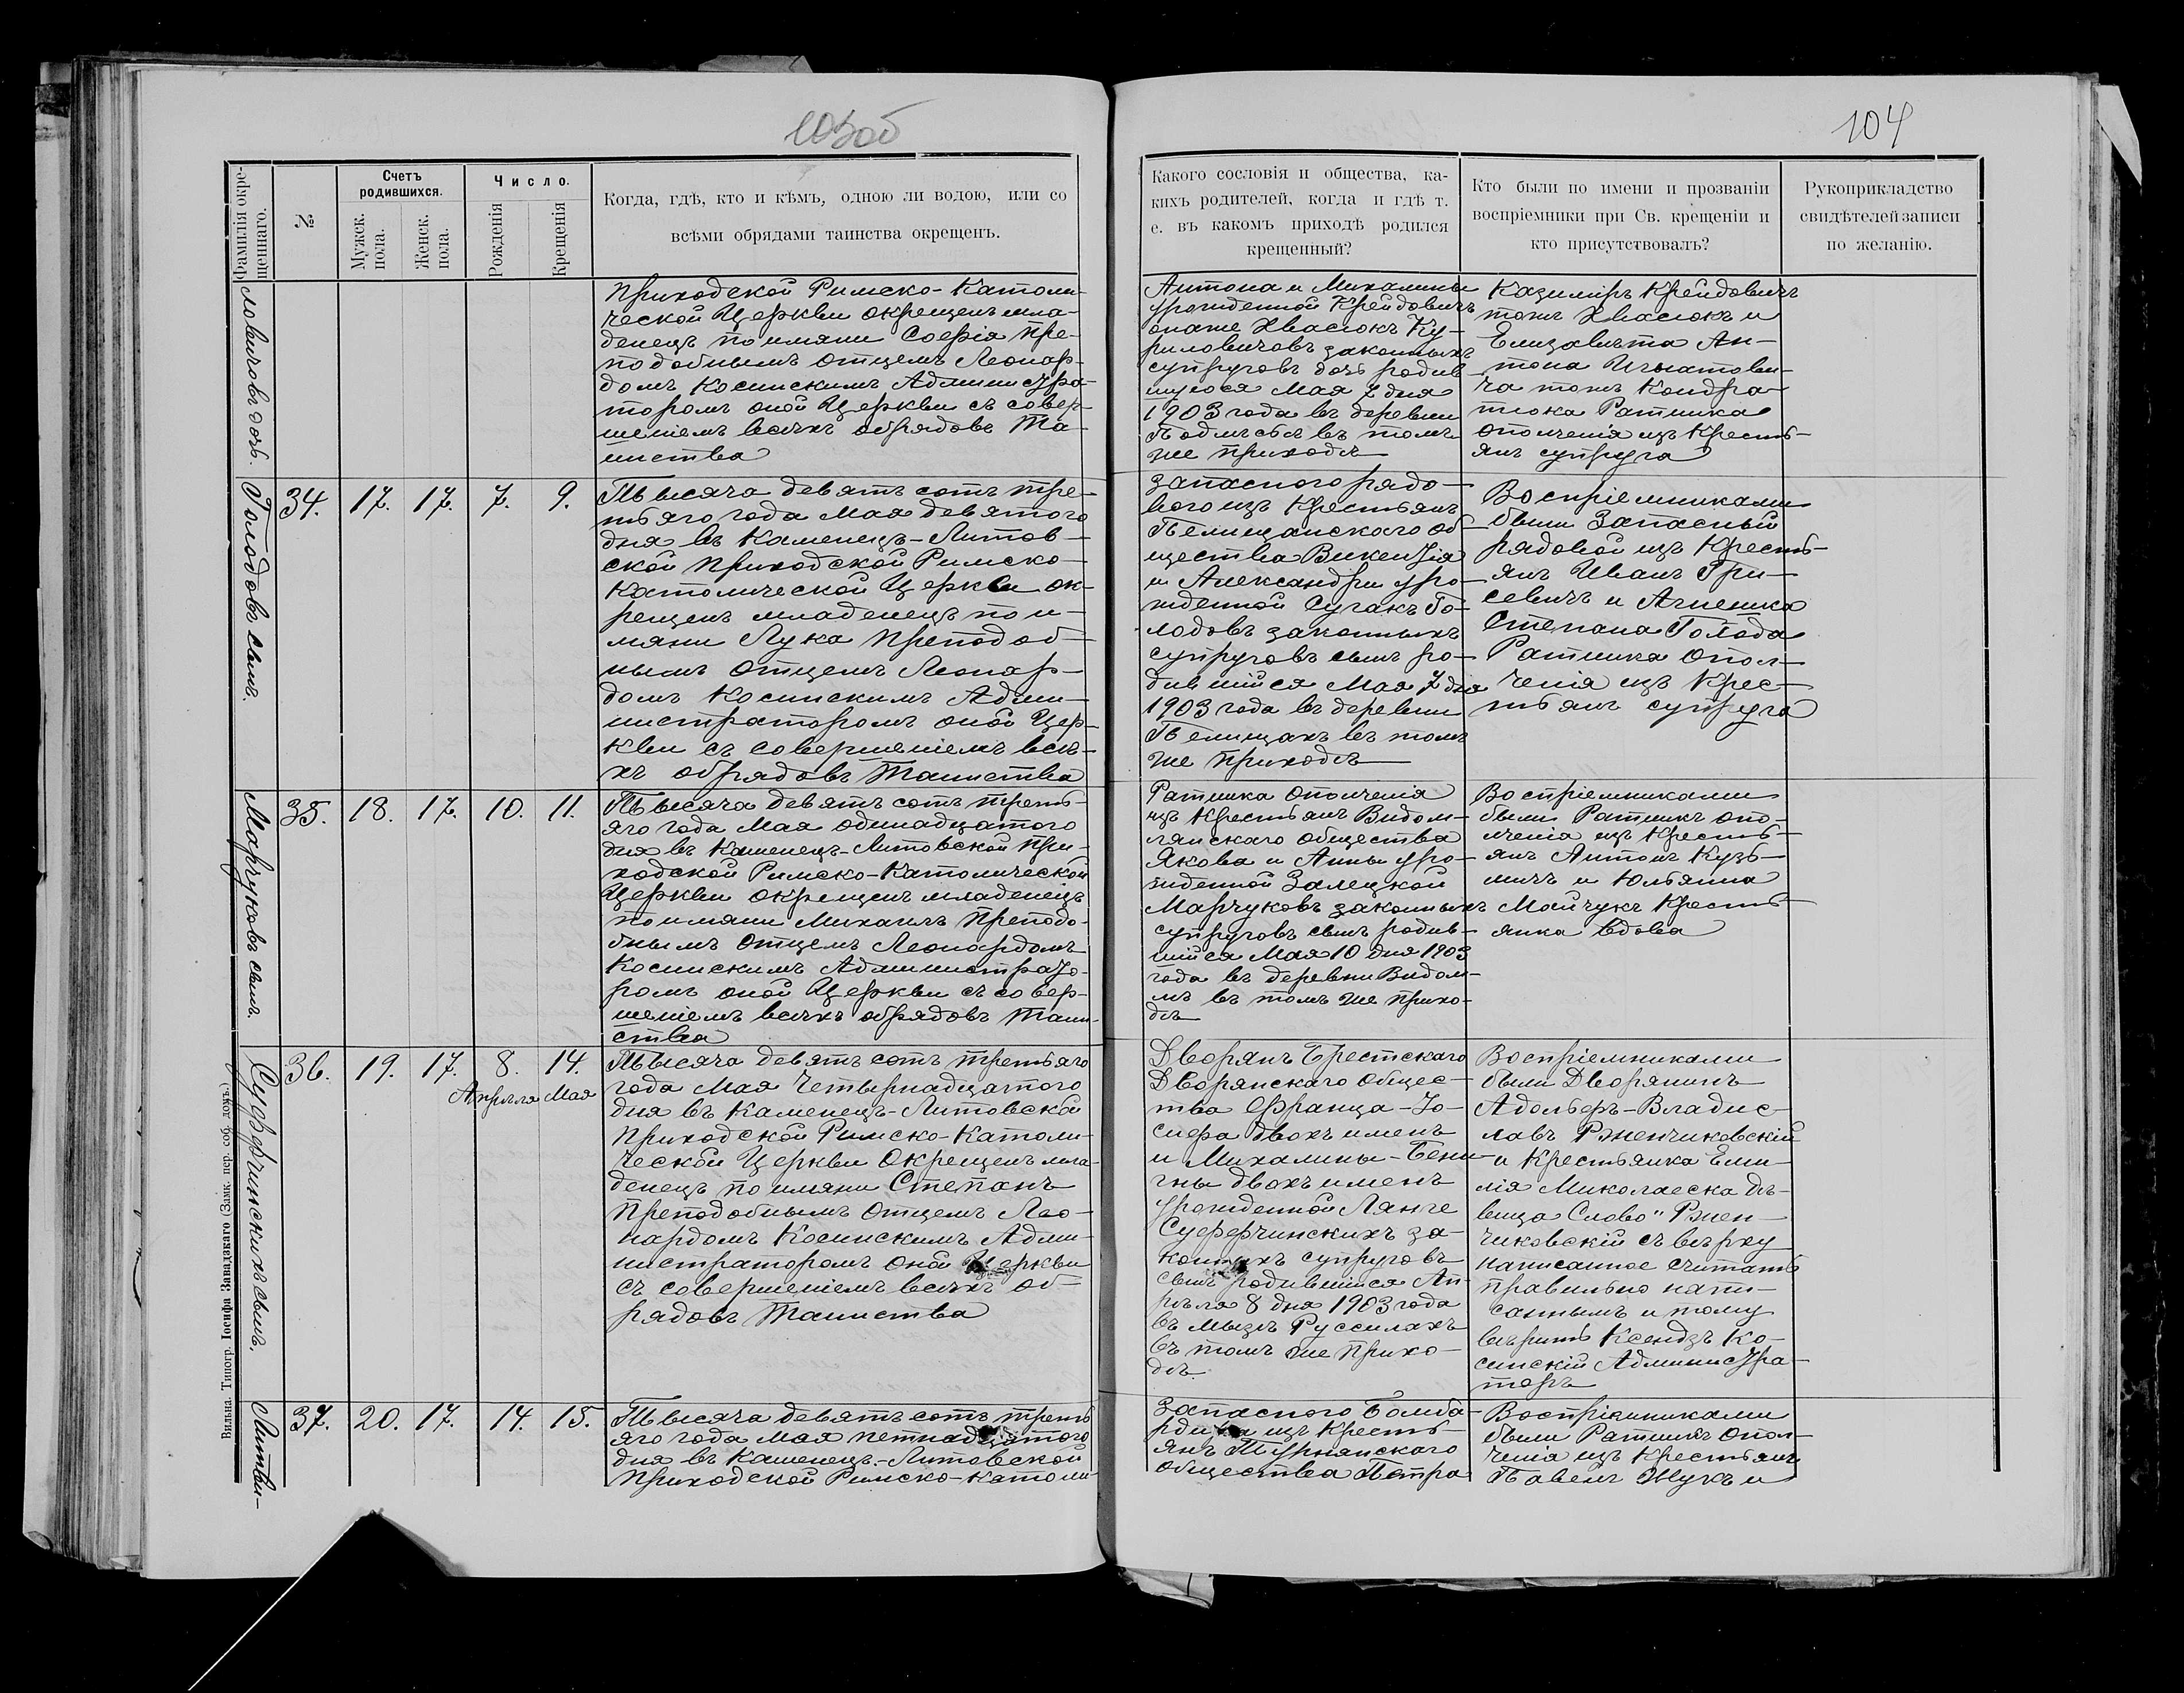 103об
104
Фамилія окре-
щеннаго.
№
Счетъ
родившихся.
Мужск.
пола.
Женск.
пола.
Число.
Рожденія
Крещенія
Когда, гдѣ, кто и кѣмъ, одною ли водою, или со
всѣми обрядами таинства окрещенъ.
Какого сословія и общества, ка-
кихъ родителей, когда и гдѣ т.
е. въ какомъ приходѣ родился
крещенный?
Кто были по имени и прозваніи
воспріемники при Св. крещеніи и
кто присутствовалъ?
Рукоприкладство
свидѣтелей записи
по желанію.
ловичовъ дочь.
приходской Римско-Католи-
ческой Церкви окрещенъ мла-
денецъ по имяни Софія пре-
подобнымъ отцемъ Леонар-
домъ Косинскимъ Администра-
торомъ оной Церкви съ совер-
шеніемъ всѣхъ обрядовъ Та-
инства
Антона и Михалины
урожденной Крейдовичъ
онаже Хвасюкъ Ку-
риловичовъ законныхъ
супруговъ дочь родив-
шуюся Мая 7 дня
1903 года въ деревни
Подлѣсьѣ въ томъ
же приходѣ
Казиміръ Крейдовичъ
тожъ Хвасюкъ и
Елизавѣта Ан-
тона Игнатови-
ча тожъ Кондра-
тюка Ратника
ополченія изъ Кресть-
янъ супруга
Голодовъ сынъ.
34. 17. 17. 7. 9.
Тысяча девятьсотъ тре-
тьяго года Мая девятого
дня въ Каменецъ-Литов-
ской приходской Римско-
Католической Церкви ок-
рещенъ младенецъ по и-
мяни Лука преподоб-
нымъ отцемъ Леонар-
домъ Косинскимъ Адми-
нистраторомъ оной Цер-
кви съ совершеніемъ всѣ-
хъ обрядовъ Таинства
Запасного рядо-
вого изъ Крестьянъ
Пелищанского об-
щества Викентія
и Александры уро-
жденной Сугакъ Го-
лодовъ законныхъ
супруговъ сынъ ро-
дившійся Мая 7 дня
1903 года въ деревни
Пелищахъ въ томъ
же приходѣ
Воспріемниками
были Запасный
рядовой изъ Кресть-
янъ Иванъ Гри-
севичъ и Агнешка
Степана Голода
Ратника опол-
ченія изъ Крес-
тьянъ супруга
Марчуковъ сынъ.
35. 18. 17. 10. 11.
Тысяча девятьсотъ треть-
яго года Мая одинадцатого
дня въ Каменецъ-Литовской при-
ходской Римско-Католической
Церкви окрещенъ младенецъ
по имяни Михаилъ преподо-
бнымъ отцемъ Леонардомъ
Косинскимъ Администрато-
ромъ оной Церкви съ совер-
шеніемъ всѣхъ обрядовъ Таин-
ства
Ратника ополченія
изъ Крестьянъ Видом-
лянскаго общества
Якова и Анны уро-
жденной Залецкой
Марчуковъ законныхъ
супруговъ сынъ родив-
шійся Мая 10 дня 1903
года въ деревни Видом-
лѣ въ томъ же прихо-
дѣ
Воспріемниками
были Ратникъ опо-
лченія изъ Кресть-
янъ Антонъ Кузь-
мичъ и Юльянна
Майчукъ Кресть-
янка вдова
Суффчинскихъ сынъ.
36. 19. 17. 8. 14.
Апрѣля Мая
Тысяча девятьсотъ третьяго
года Мая Четырнадцатого
дня въ Каменецъ-Литовской
приходской Римско-Католи-
ческой Церкви окрещенъ мла-
денецъ по имяни Степанъ
преподобнымъ отцемъ Лео-
нардомъ Косинскимъ Адми-
нистраторомъ оной Церкви
съ совершеніемъ всѣхъ об
рядовъ Таинства
Дворянъ Брестскаго
Дворянскаго общес-
тва Франца-Іо-
сифа двохъ именъ
и Михалины-Бени-
гны двохъ именъ
урожденной Лянге
Суффчинскихъ за-
конныхъ супруговъ
сынъ родившійся Ап-
рѣля 8 дня 1903 года
въ мызѣ Руссилахъ
въ томъ же прихо-
дѣ.
Воспріемниками
были Дворянинъ
Адольфъ-Владис-
лавъ Рженчиковскій
и Крестьянка Еми-
лія Миколаеска дѣ-
вица Слово "Ржен-
чиковскій съ вѣрху
написанное считать
правильно напи-
саннымъ и тому
вѣрить Ксендзъ Ко-
синскій Администра-
торъ
Литви-
37. 20. 17. 14. 15.
Тысяча девятьсотъ треть
яго года мая петнадцатого
дня въ Каменецъ-Литовской
приходской Римско-Католи-
Запасного Бомба-
рдира изъ Кресть-
янъ Турнянского
общества Петра
Воспріемниками
были Ратникъ опол-
ченія изъ Крестьянъ
Павелъ Жукъ и
Вильна. Типогр. Іосифа Завадзкаго (Замк. пер. соб. домъ.)